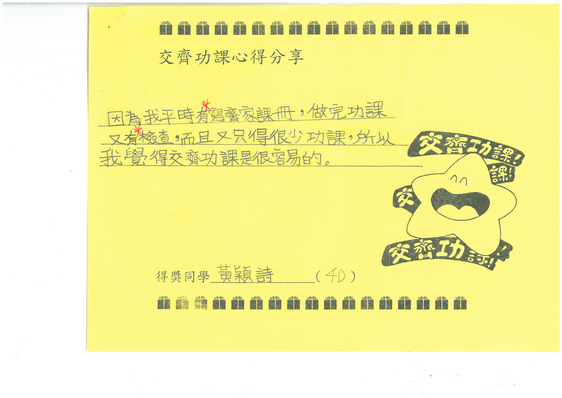 交齊功課心得分享
因為我平時有寫齊家課冊，做完功課
又有檢查，而且又只得很少功課，所以
我覺得交齊功課是很容易的。
交齊功課!
課!
交
交齊功課!
得獎同學 黃穎詩 (4D)